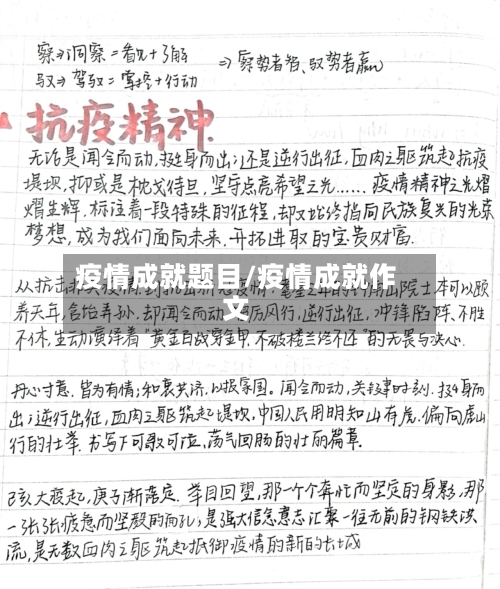 察⇒洞察=看见+了解
驭⇒驾驭=掌控+行动
⇒察势者智、驭势者赢
抗疫精神
无论是闻令而动,挺身而出;还是逆行出征,血肉之躯筑起抗疫
堤坝,抑或是枕戈待旦,坚守点亮希望之光……疫情精神之光熠
熠生辉,标注着一段特殊的征程,却又始终指向民族复兴的光荣
梦想,成为我们面向未来、开拓进取的宝贵财富.
疫情成就题目/疫情成就作
文
从抗击 院士本可以颐
养天年,含饴弄孙,却闻令而动 厉风行,逆行出征,冲锋陷阵、不胜
不休,生动演泽着"黄金百战穿金甲,不破楼兰终不还"的无畏与决心.
丹心寸意,皆为有情;和衷共济,以报家国。闻令而动,关键时刻.挺身而
出;逆行出征,血肉之躯筑起堤坝.中国人民用明知山有虎.偏向虎山
行的壮举.书写下可歌可泣,荡气回肠的壮丽篇章.
己亥大疫起,庚子渐落定.举目回望,那一个个奔忙而坚定的身影,那
一张张疲惫而坚毅的面孔;是强大信念意志汇聚一往无前的钢铁洪
流,是无数血肉之躯筑起抵御疫情的新的长城